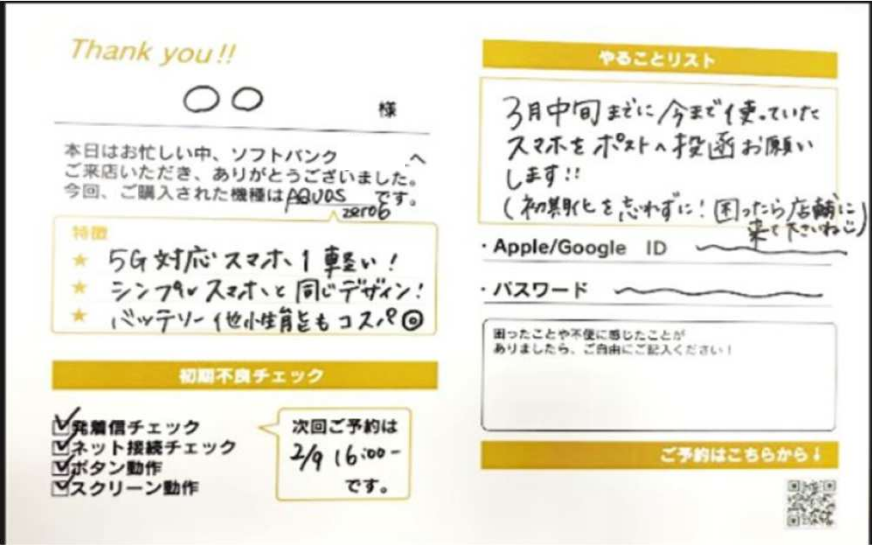 Thank you!!
○○ 様
本日はお忙しい中、ソフトバンク へ
ご来店いただき、ありがとうございました。
今回、ご購入された機種はAQUOS です。
zero6
特徴
★ 5G対応スマホ1軽い!
★ シンプルスマホと同じデザイン!
★ バッテリー他性能もコスパ◎
初期不良チェック
発着信チェック
ネット接続チェック
ボタン動作
スクリーン動作
次回ご予約は
2/9 16:00-
です。
やることリスト
3月中旬までに今まで使っていた
スマホをポストへ投函お願い
します!!
(初期化を忘れずに!困ったら店舗に
来て下さいね)
・Apple/Google ID
・パスワード
困ったことや不便に感じたことが
ありましたら、ご自由にご記入ください!
ご予約はこちらから↓